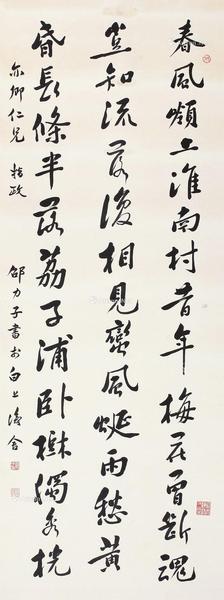 春風嶺上淮南村昔年梅花曾斷魂
豈知流落復相見蠻風蜒雨愁黃
昏長條半落荔子浦臥樹獨秀桄
亦卿仁兄 指政
邵力子書於白上漫舍